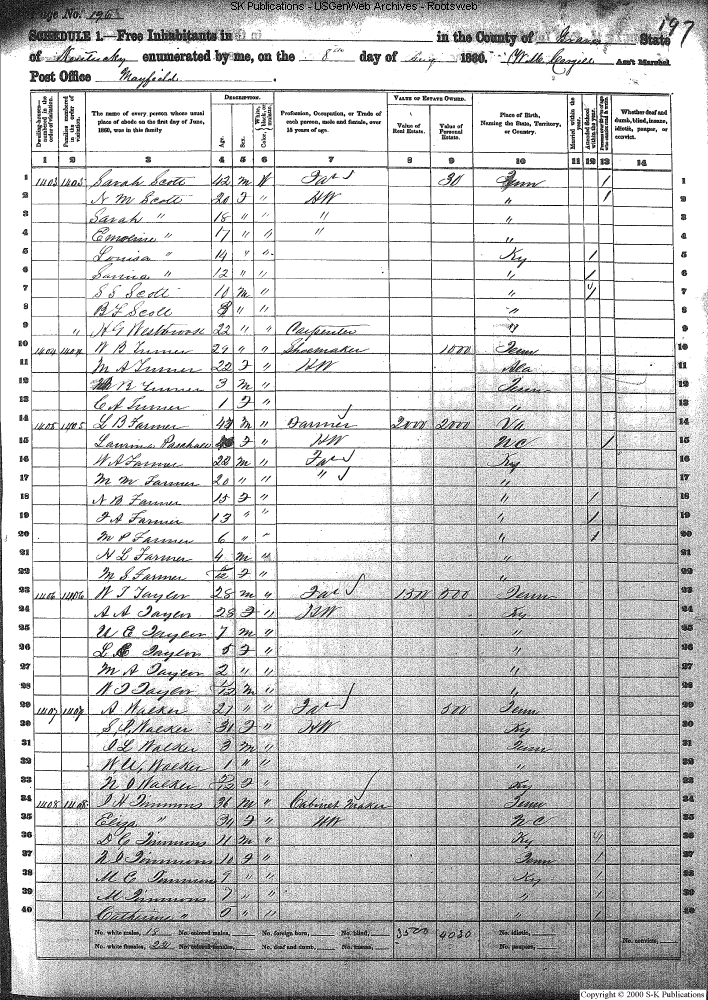 SK Publications - USGenWeb Archives - Rootsweb
Page No. 196
197
SCHEDULE 1.—Free Inhabitants in in the County of State
of Kentucky enumerated by me, on the 8th day of Aug 1860. Ass't Marshal.
Post Office Mayfield
Dwelling-houses—numbered in the order of visitation.
Families numbered in the order of visitation.
The name of every person whose usual place of abode on the first day of June, 1860, was in this family
DESCRIPTION.
Age.
Sex.
Color, White, black, or mulatto.
Profession, Occupation, or Trade of each person, male and female, over 15 years of age.
VALUE OF ESTATE OWNED.
Value of Real Estate.
Value of Personal Estate.
Place of Birth, Naming the State, Territory, or Country.
Married within the year.
Attended School within the year.
Whether deaf and dumb, blind, insane, idiotic, pauper, or convict.
1 2 3 4 5 6 7 8 9 10 11 12 13 14
1 1403 1403 Sarah Scott 42 m W Far 30 Tenn / 1
2 N M Scott 20 F " HW " / 2
3 Sarah " 18 " " " " 3
4 Emoline " 17 " " " " 4
5 Louisa " 14 " " Ky / 5
6 " 12 " " " / 6
7 S S Scott 10 m " " / 7
8 B F Scott " " " 8
9 " H G Westbrook 22 " " Carpenter " 9
10 1404 1404 W B Turner 29 " " Shoemaker 1000 Tenn 10
11 M A Turner 22 F " HW Ala 11
12 R Turner 3 m " Tenn 12
13 C A Turner 1 F " " 13
14 1405 1405 L B Farmer m " Farmer 2000 2000 Va 14
15 Paschall F " HW N C / 15
16 W A Farmer 22 m " Far Ky 16
17 M M Farmer 20 " " " " 17
18 N B Farmer 15 F " " / 18
19 F A Farmer 13 " " " / 19
20 M P Farmer 6 " " " / 20
21 H L Farmer 4 m " " 21
22 M S Farmer /12 F " " 22
23 1406 1406 W T Taylor 28 m " Far 150 500 Tenn 23
24 A A Taylor 28 F " HW Ky 24
25 U E Taylor 7 m " " 25
26 L E Taylor 5 F " " 26
27 M A Taylor 2 " " " 27
28 W T Taylor /12 m " " 28
29 1407 1407 A Walker 27 " " Far 500 Tenn 29
30 S P Walker 31 F " HW Ky 30
31 L Walker 3 m " Tenn 31
32 W U Walker 1 " " " 32
33 N O Walker /12 F " Ky 33
34 1408 1408 H Timmons 36 m " Cabinet Maker Tenn 34
35 Eliza " 34 F " HW N C 35
36 D C Timmons 11 m " Ky / 36
37 Timmons 10 F " Tenn / 37
38 M C Timmons 9 " " Ky / 38
39 M Timmons 7 " " " / 39
40 Catherine " " " " / 40
No. white males, 18 No. colored males, No. foreign born, No. blind, 3500 4030 No. idiotic,
No. white females, 22 No. colored females, No. deaf and dumb, No. insane, No. paupers, No. convicts,
Copyright © 2000 S-K Publications